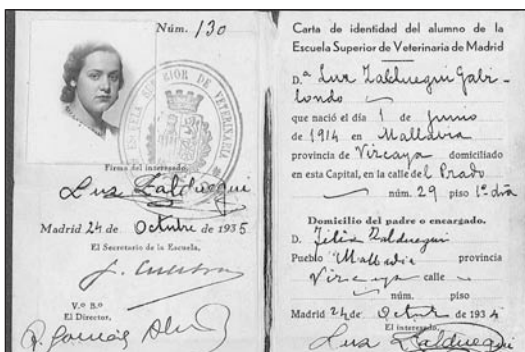 Núm. 130
ESCUELA SUPERIOR DE VETERINARIA
Firma del interesado,
Luz Zalduegui
Madrid 24 de Octubre de 1935
El Secretario de la Escuela,
V.º B.º
El Director,
Carta de identidad del alumno de la
Escuela Superior de Veterinaria de Madrid
D.ª Luz Zalduegui Gabi-
londo
que nació el día 1 de Junio
de 1914 en Mallavia
provincia de Vizcaya domiciliado
en esta Capital, en la calle del Prado
núm. 29 piso 1º dra
Domicilio del padre o encargado.
D. Felix Zalduegui
Pueblo Mallavia provincia
Vizcaya calle
núm. piso
Madrid 24 de Octubre de 193
El interesado,
Luz Zalduegui